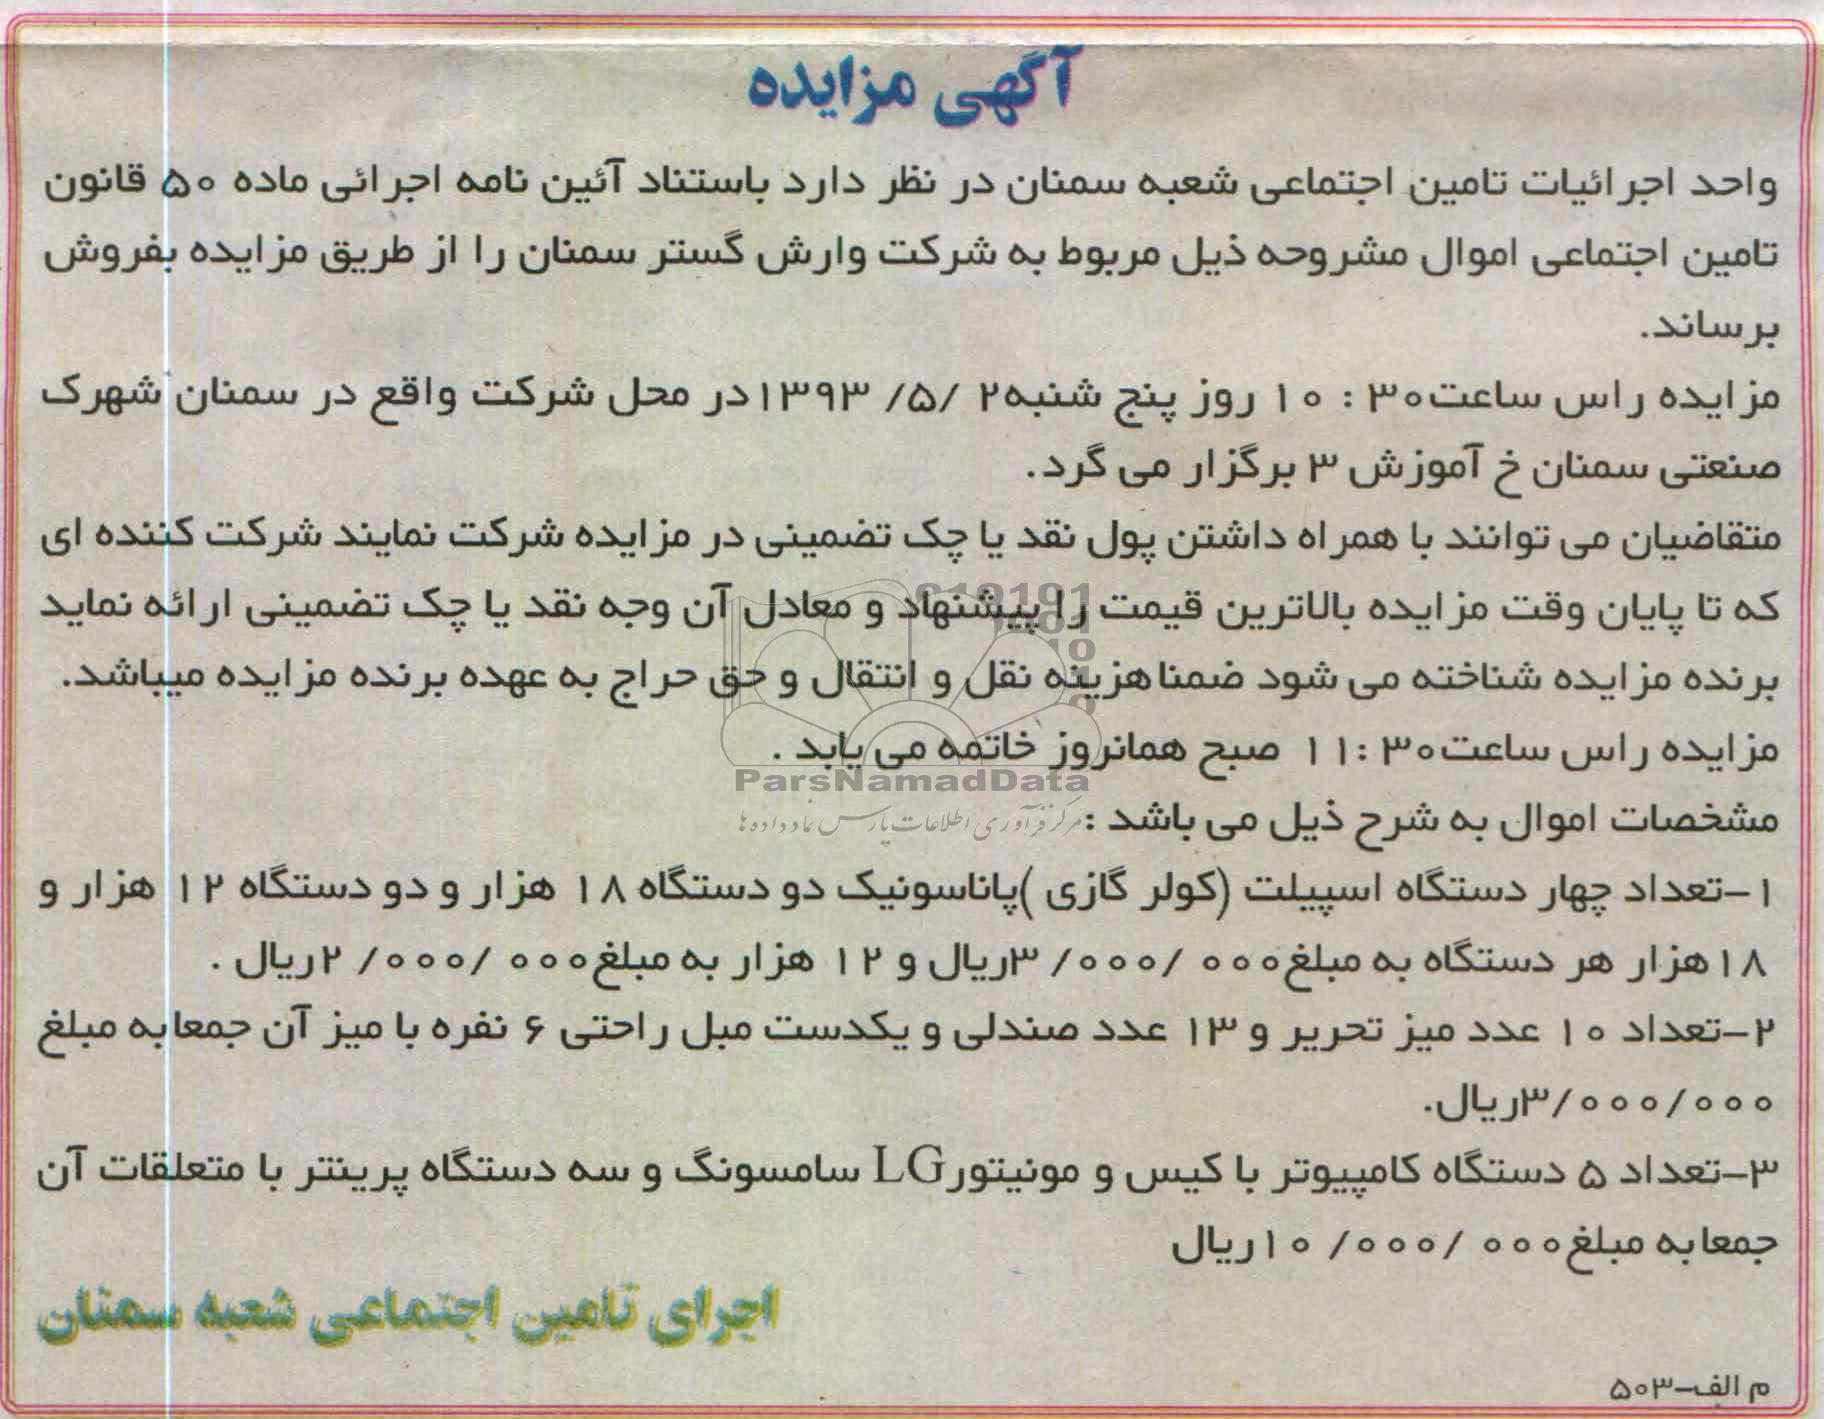 آگهی مزایده
واحد اجرائیات تامین اجتماعی شعبه سمنان در نظر دارد باستناد آئین نامه اجرائی ماده ۵۰ قانون
تامین اجتماعی اموال مشروحه ذیل مربوط به شرکت وارش گستر سمنان را از طریق مزایده بفروش
برساند.
مزایده راس ساعت۳۰ : ۱۰ روز پنج شنبه۲ /۵/ ۱۳۹۳در محل شرکت واقع در سمنان شهرک
صنعتی سمنان خ آموزش ۳ برگزار می گرد.
متقاضیان می توانند با همراه داشتن پول نقد یا چک تضمینی در مزایده شرکت نمایند شرکت کننده ای
که تا پایان وقت مزایده بالاترین قیمت را پیشنهاد و معادل آن وجه نقد یا چک تضمینی ارائه نماید
برنده مزایده شناخته می شود ضمنا هزینه نقل و انتقال و حق حراج به عهده برنده مزایده میباشد.
مزایده راس ساعت۳۰ :۱۱ صبح همانروز خاتمه می یابد .
ParsNamadData
مرکز فرآوری اطلاعات پارس نماد داده ها
مشخصات اموال به شرح ذیل می باشد :
۱-تعداد چهار دستگاه اسپیلت (کولر گازی )پاناسونیک دو دستگاه ۱۸ هزار و دو دستگاه ۱۲ هزار و
۱۸هزار هر دستگاه به مبلغ۰۰۰ /۰۰۰/ ۳ریال و ۱۲ هزار به مبلغ۰۰۰ /۰۰۰/ ۲ریال .
۲-تعداد ۱۰ عدد میز تحریر و ۱۳ عدد صندلی و یکدست مبل راحتی ۶ نفره با میز آن جمعا به مبلغ
۳/۰۰۰/۰۰۰ریال.
۳-تعداد ۵ دستگاه کامپیوتر با کیس و مونیتورLG سامسونگ و سه دستگاه پرینتر با متعلقات آن
جمعا به مبلغ۰۰۰ /۰۰۰/ ۱۰ریال
اجرای تامین اجتماعی شعبه سمنان
م الف-۵۰۳